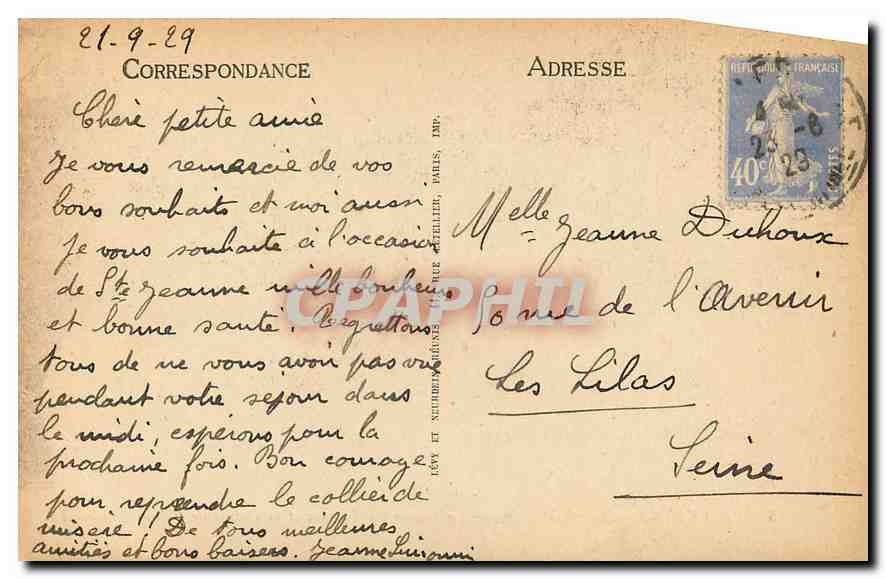 21-9-29
CORRESPONDANCE
Chère petite amie
Je vous remercie de vos
bons souhaits et moi aussi
je vous souhaite à l'occasion
de Ste Jeanne mille bonheurs
et bonne santé. Regrettons
tous de ne vous avoir pas vue
pendant votre sejour dans
le midi, espérons pour la
prochaine fois. Bon courage
pour reprendre le collier de
misère! De tous meilleures
amitiés et bons baisers. Jeanne
LÉVY ET NEURDEIN RÉUNIS, RUE LETELLIER, PARIS, IMP.
ADRESSE
RÉPUBLIQUE FRANÇAISE
40c
POSTES
23 -8
29
Melle Jeanne Duhoux
rue de l'Avenir
Les Lilas
Seine
CPAPHIL